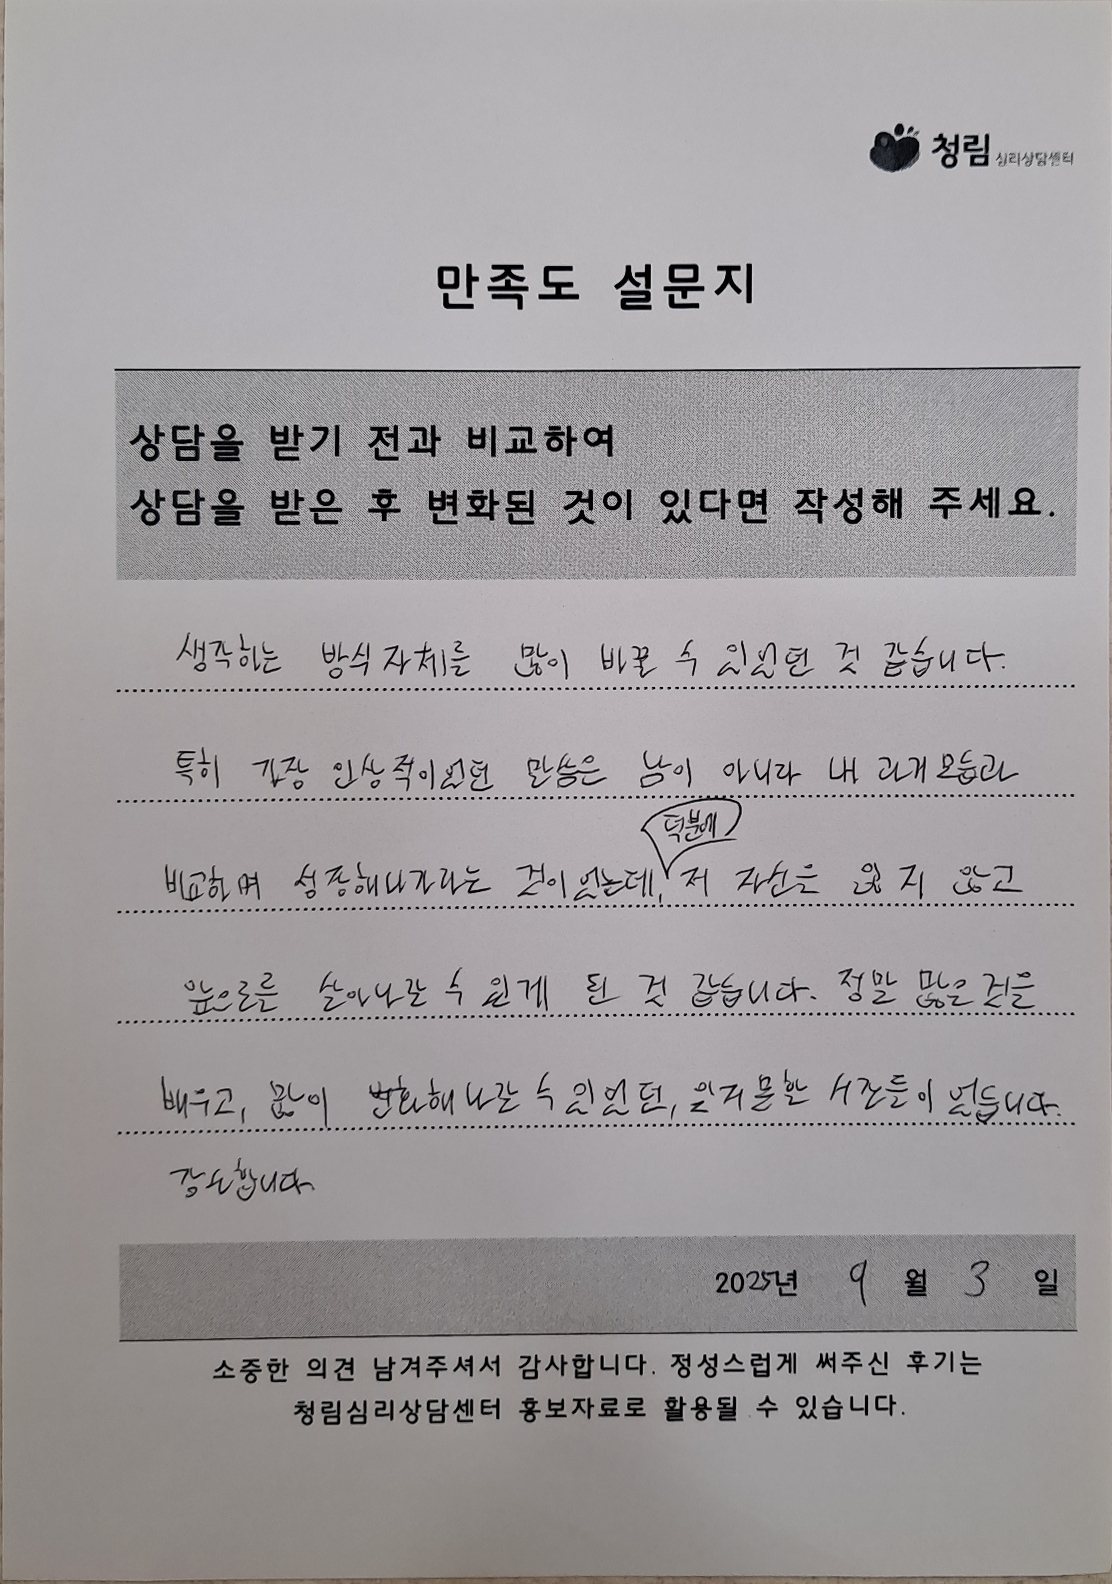 청림 심리상담센터
만족도 설문지
상담을 받기 전과 비교하여
상담을 받은 후 변화된 것이 있다면 작성해 주세요.
생각하는 방식 자체를 많이 바꿀 수 있었던 것 같습니다.
특히 가장 인상적이었던 말씀은 남이 아니라 내 과거 모습과
덕분에
비교하며 성장해나가라는 것이었는데, 저 자신을 잃지 않고
앞으로를 살아나갈 수 있게 된 것 같습니다. 정말 많은 것을
배우고, 많이 변화해나갈 수 있었던, 잊지 못할 시간들이었습니다.
감사합니다.
2025년 9 월 3 일
소중한 의견 남겨주셔서 감사합니다. 정성스럽게 써주신 후기는
청림심리상담센터 홍보자료로 활용될 수 있습니다.